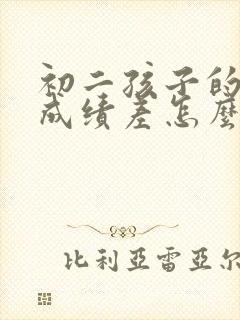 初二孩子的
成绩差怎麼
比利亞雷亞尔